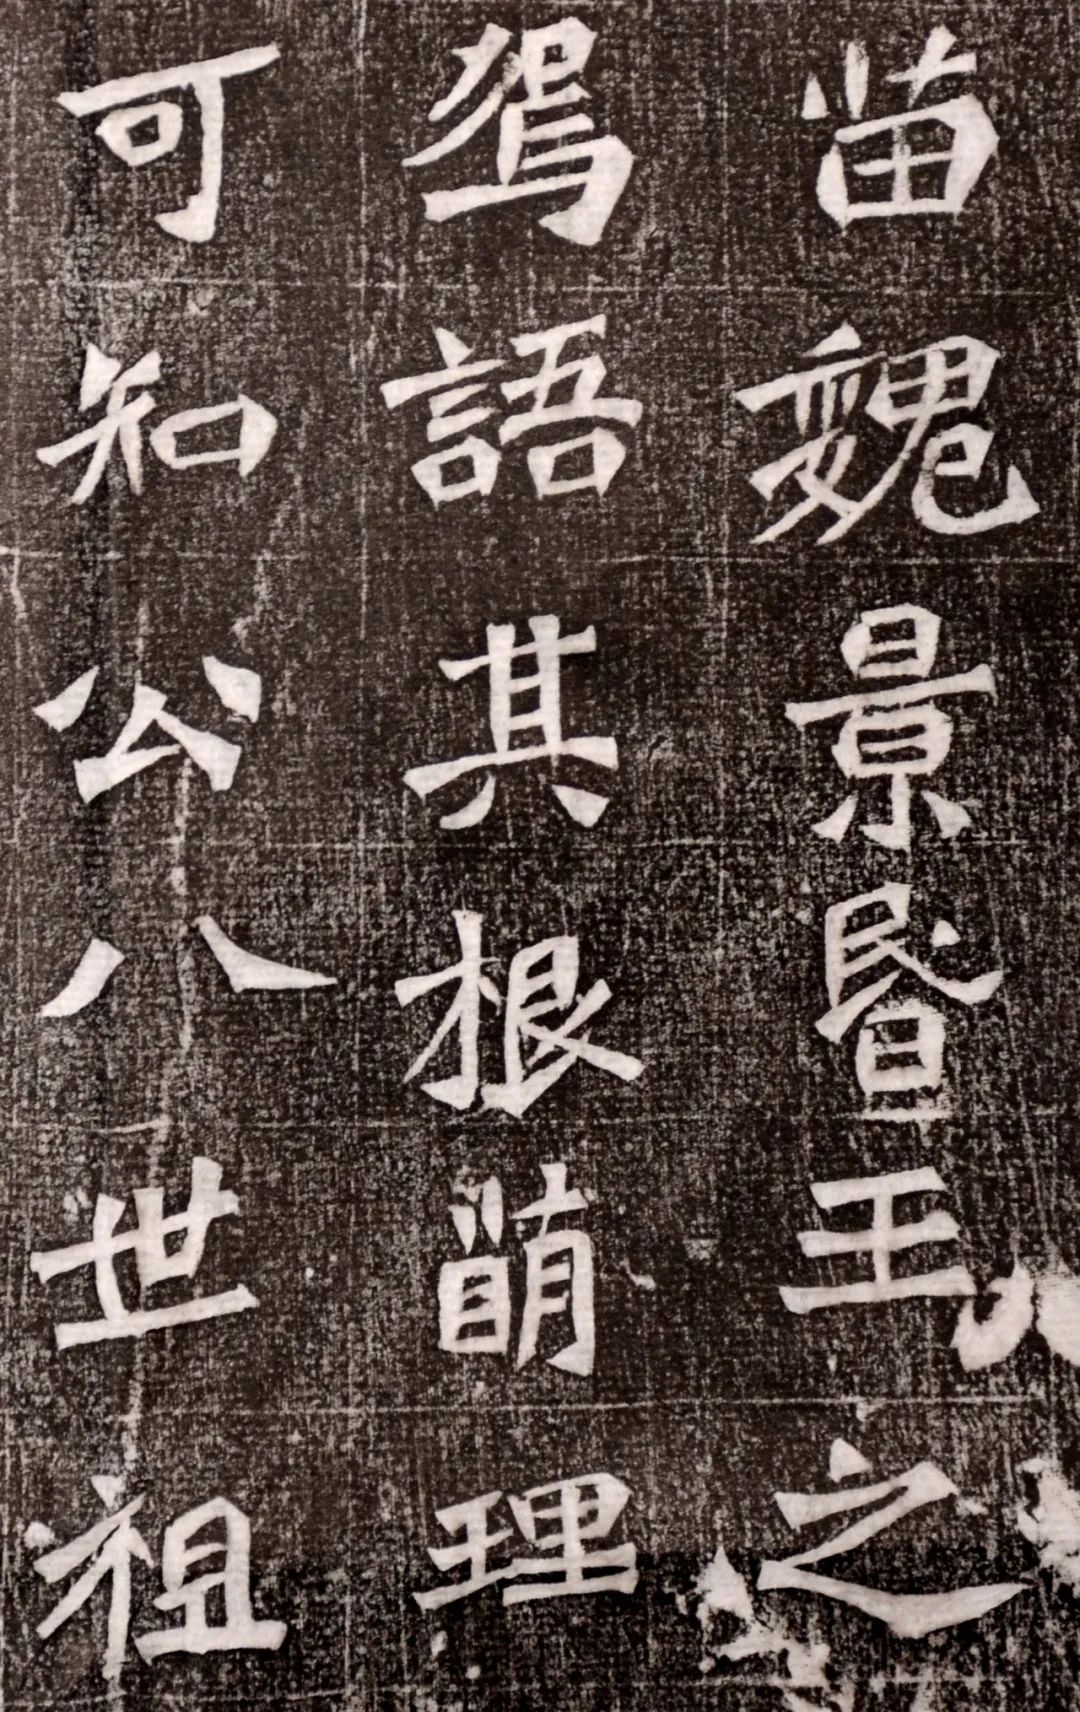 苗魏景昬王之
焉語其根萌理
可知公八世祖